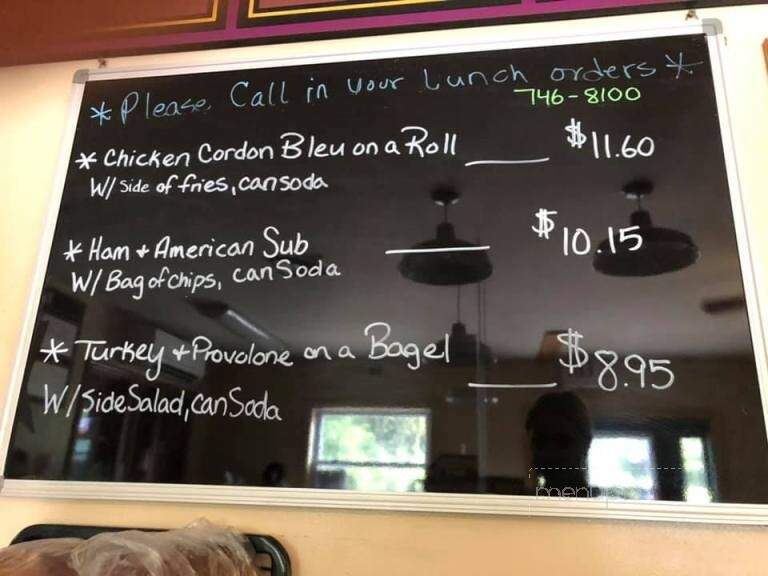 * Please Call in your Lunch orders *
746-8100
* Chicken Cordon Bleu on a Roll ____ $11.60
W/ Side of fries, can soda
* Ham + American Sub ____ $10.15
W/ Bag of chips, can Soda
* Turkey + Provolone on a Bagel ____ $8.95
W/ Side Salad, can Soda